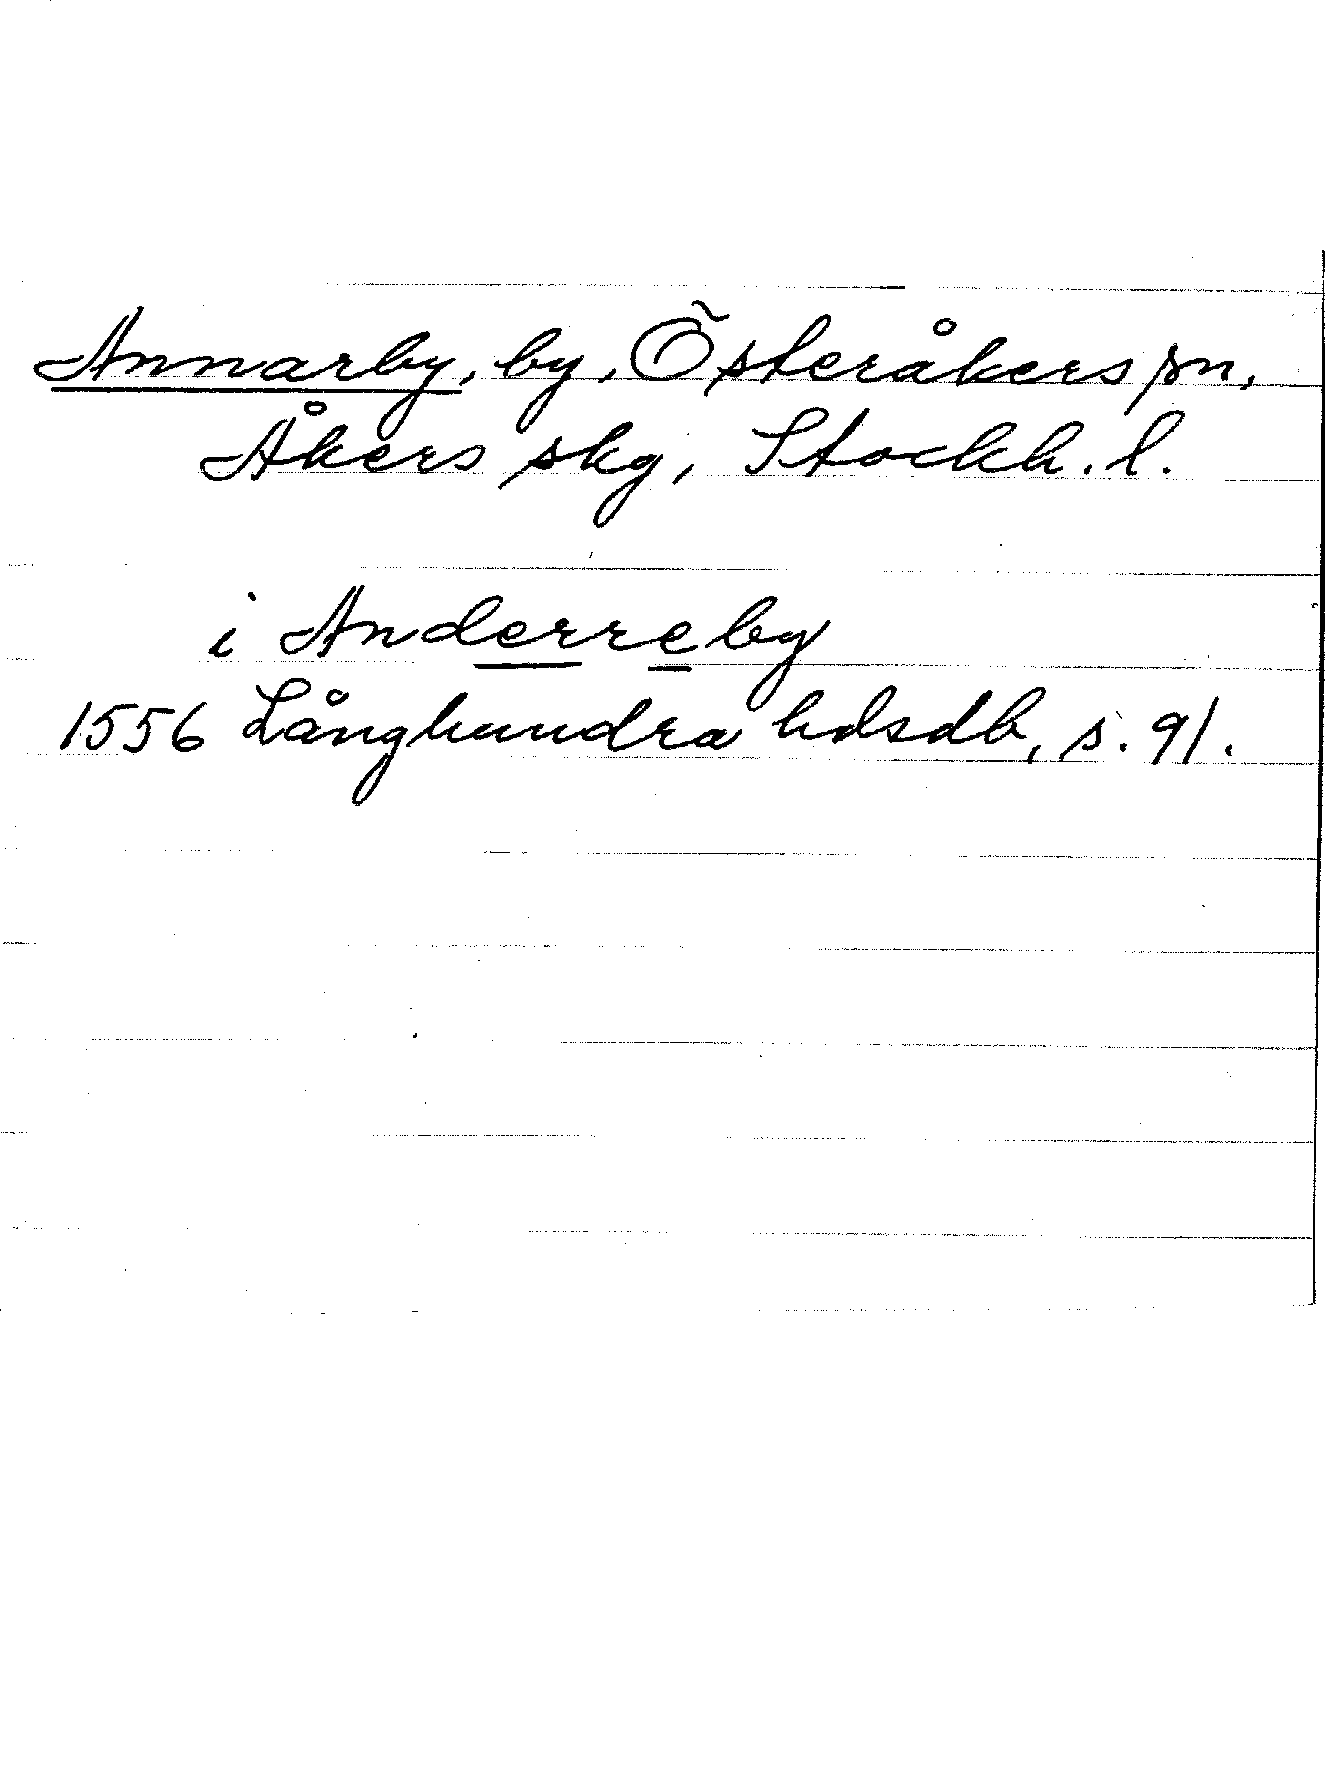 Annarby, by, Österåkers sn,
Åkers skg, Stockh. l.
i Anderreby
1556 Långhundra hdsdb, s. 91.